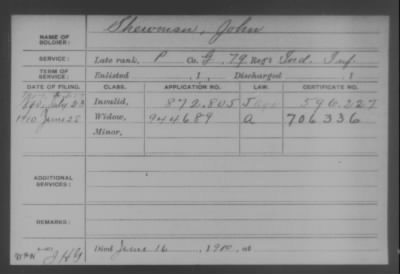 NAME OF SOLDIER: Shewman, John
SERVICE: Late rank, P Co. G, 79 Reg't Ind. Inf.
TERM OF SERVICE: Enlisted , 1 , Discharged , 1
DATE OF FILING. CLASS. APPLICATION NO. LAW. CERTIFICATE NO.
1890, July 23 Invalid, 872.805 596.227
1910 June 28 Widow, 944689 A 706336
Minor,
ADDITIONAL SERVICES:
REMARKS:
Died June 16, 1910, at